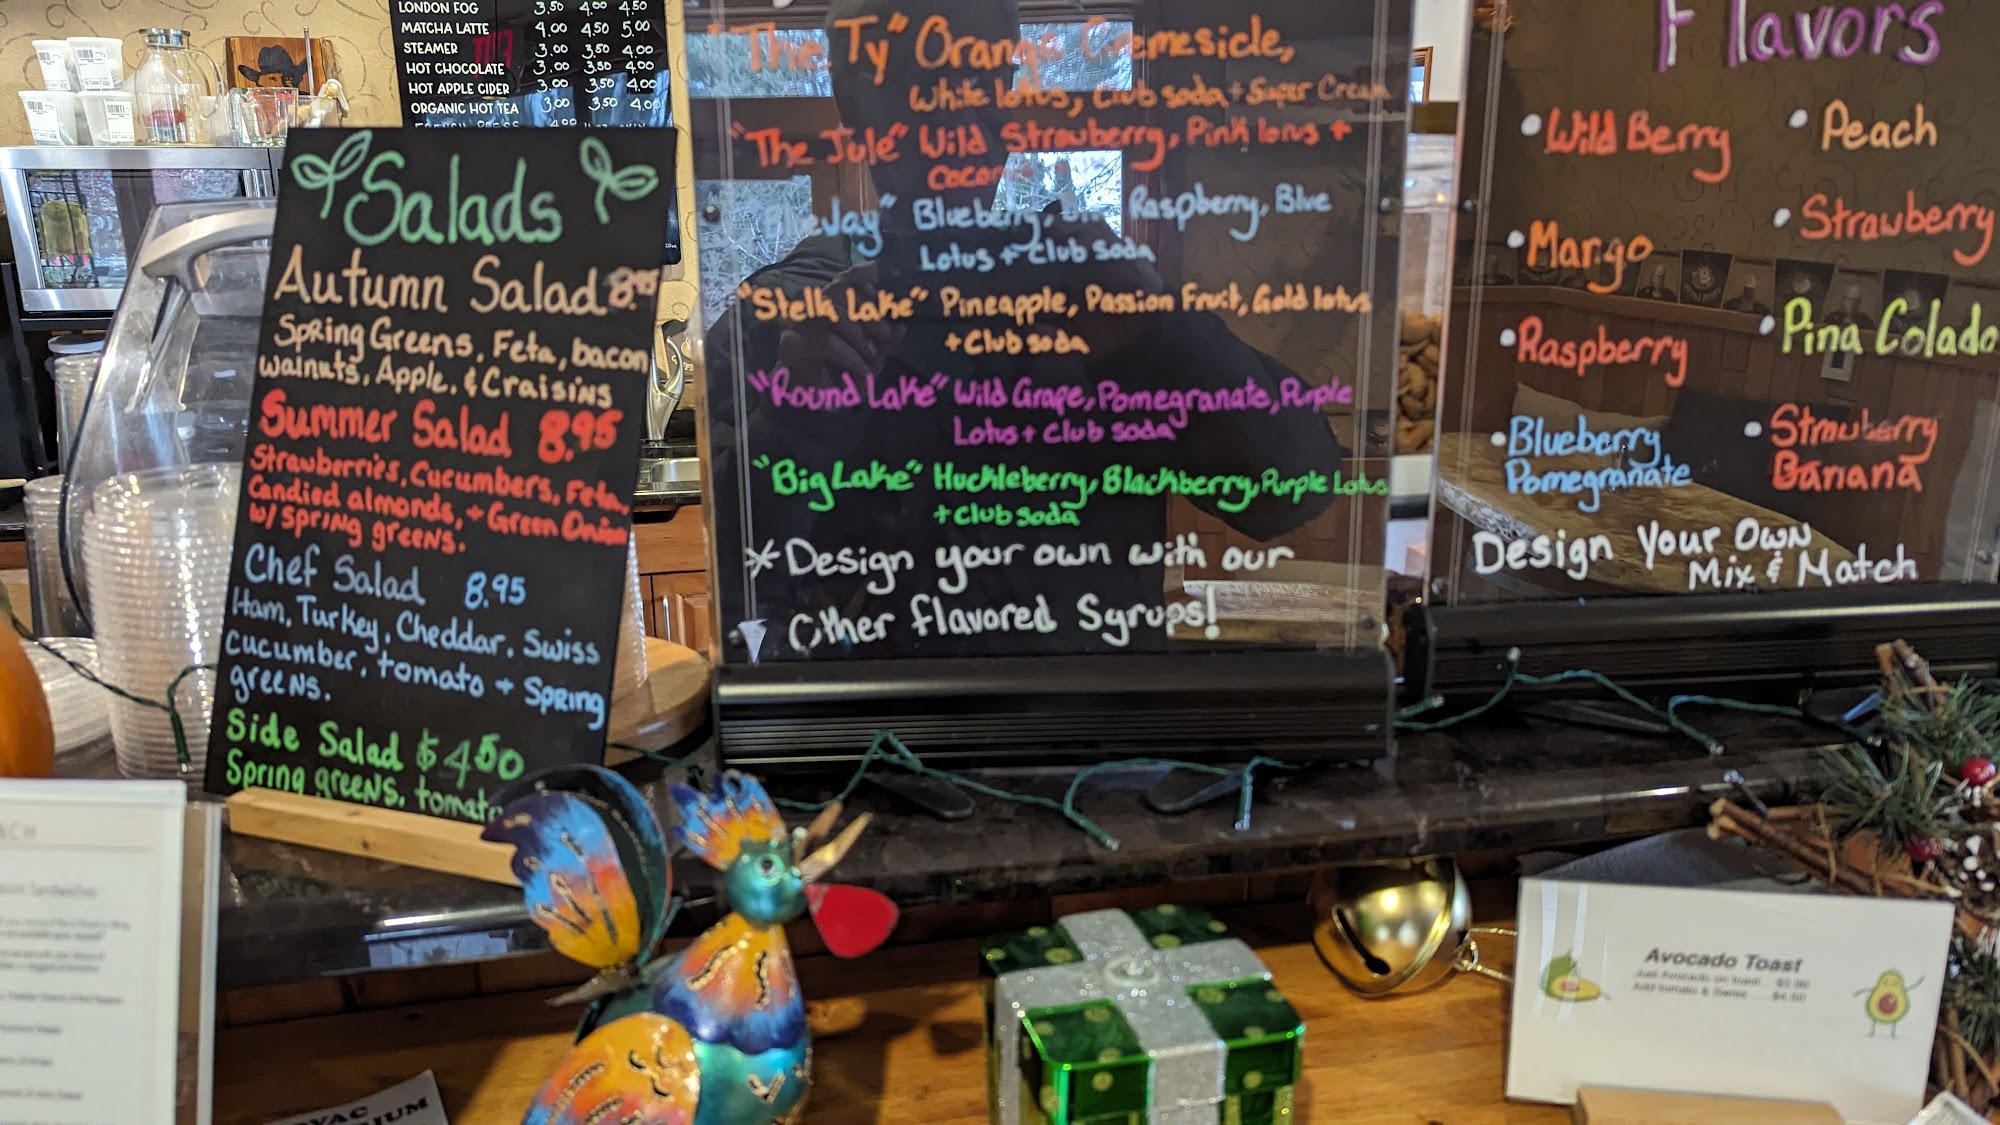 LONDON FOG 3.50 4.00 4.50
MATCHA LATTE 4.00 4.50 5.00
STEAMER 3.00 3.50 4.00
HOT CHOCOLATE 3.00 3.50 4.00
HOT APPLE CIDER 3.00 3.50 4.00
ORGANIC HOT TEA 3.00 3.50 4.00
Salads
Autumn Salad 8.95
Spring Greens, Feta, bacon
walnuts, Apple, & Craisins
Summer Salad 8.95
Strawberries, Cucumbers, Feta,
Candied almonds, + Green Onion
w/ spring greens.
Chef Salad 8.95
Ham, Turkey, Cheddar, Swiss
cucumber, tomato + Spring
greens.
Side Salad $4.50
Spring greens, tomato
"The Ty" Orange Cremesicle,
White lotus, Club soda + Super Cream
"The Jule" Wild Strawberry, Pink lotus +
Blueberry, Raspberry, Blue
Lotus + Club soda
"Stella Lake" Pineapple, Passion Fruit, Gold lotus
+ Club soda
"Round Lake" Wild Grape, Pomegranate, Purple
Lotus + Club soda
"Big Lake" Huckleberry, Blackberry, Purple Lotus
+ Club soda
* Design your own with our
other flavored Syrups!
Flavors
• Wild Berry
• Peach
• Mango
• Strawberry
• Raspberry
• Pina Colada
• Blueberry
Pomegranate
• Strawberry
Banana
Design Your Own
Mix & Match
Avocado Toast
Just Avocado on toast
Add tomato & Swiss $4.50